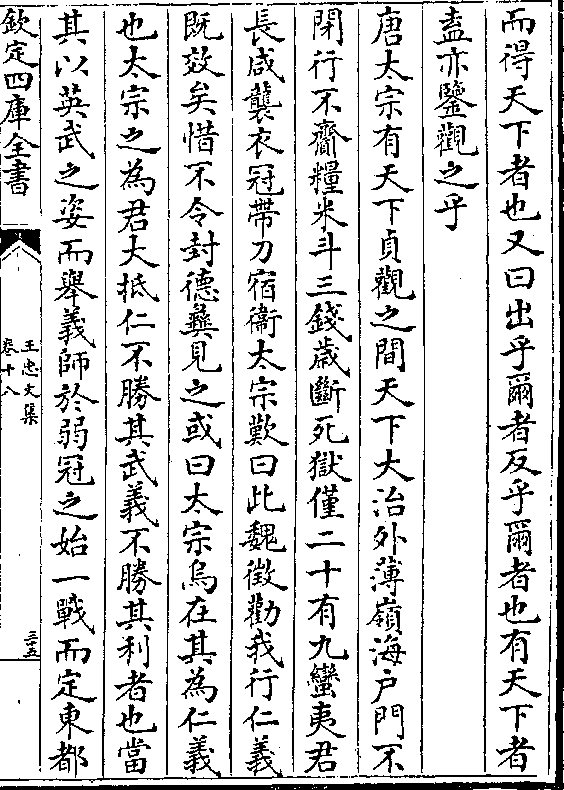 而得天下者也又曰出乎爾者反乎爾者也有天下者
盍亦鑒觀之乎
唐太宗有天下貞觀之間天下大治外薄嶺海戶門不
閉行不齎糧米斗三錢歳斷死獄僅二十有九蠻夷君
長咸襲衣冠帶刀宿衞太宗歎曰此魏徵勸我行仁義
既效矣惜不令封德彝見之或曰太宗烏在其為仁義
也太宗之為君大抵仁不勝其武義不勝其利者也當
其以英武之姿而舉義師於弱冠之始一戰而定東都
欽定四庫全書
王忠文集
卷十八
三十五